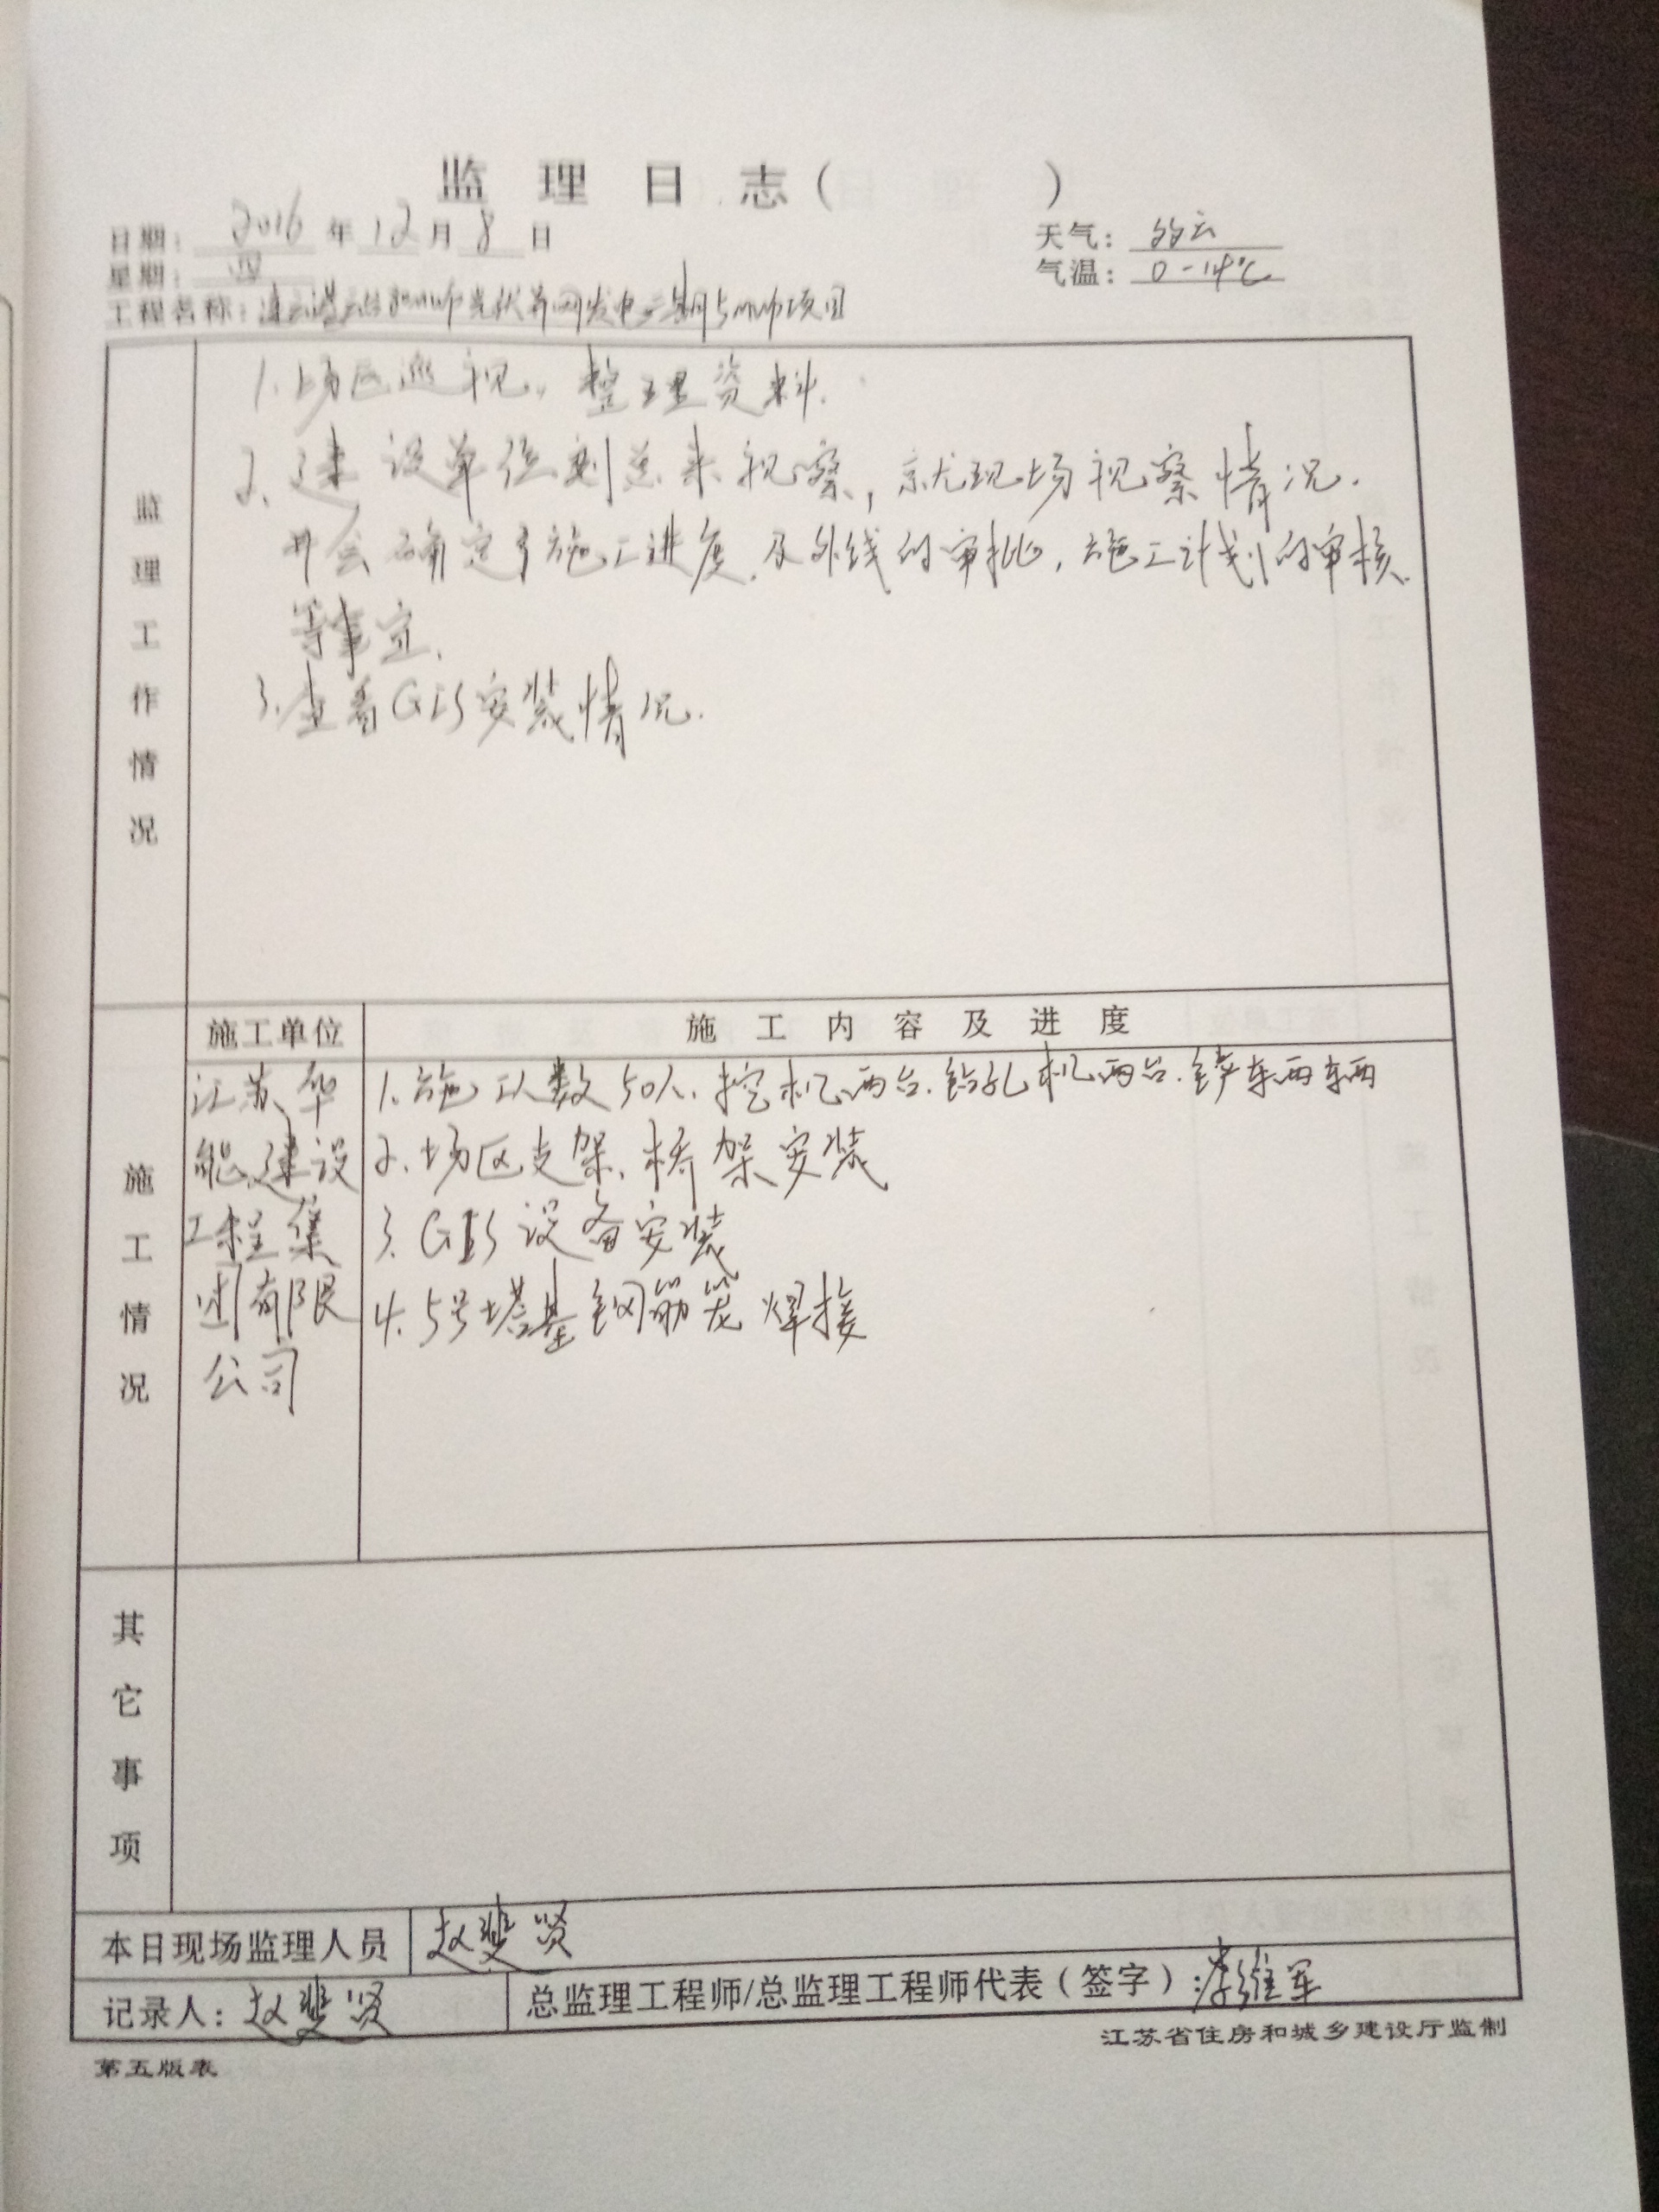 监理日志( )
日期: 2016 年 12 月 8 日
天气: 多云
星期: 四
气温: 0-14℃
工程名称: 连云港 光伏并网发电二期 项目
监理工作情况
1.场区巡视。整理资料.
2.建设单位刘总来视察,就现场视察情况.
开会确定了施工进度.及外线的审批,施工计划的审核.
等事宜.
3.查看GIS安装情况.
施工情况
施工单位
施工内容及进度
江苏华
能建设
工程集
团有限
公司
1.施工人数50人.挖机两台.钻孔机两台.铲车两车两
2.场区支架、桥架安装
3.GIS设备安装
4.5号塔基钢筋笼焊接
其它事项
本日现场监理人员 赵斐贤
记录人: 赵斐贤
总监理工程师/总监理工程师代表(签字): 李维军
江苏省住房和城乡建设厅监制
第五版表